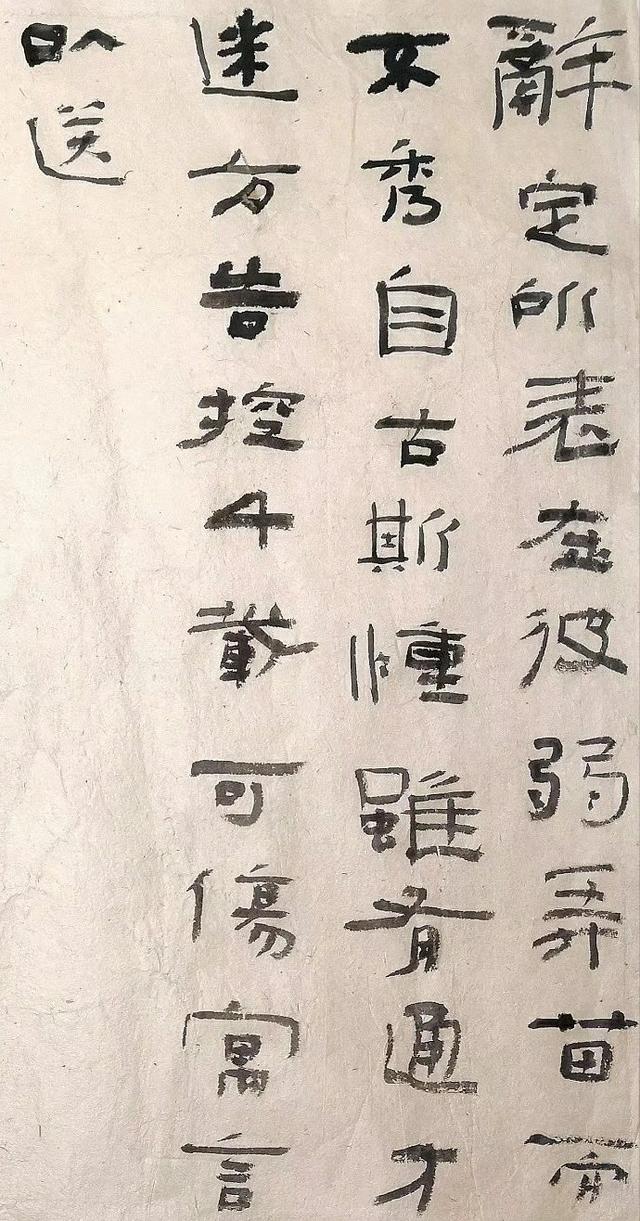 辭定所表在彼弱弄苗而
不秀自古斯慟雖有通才
迷方告控千載可傷寓言
以送